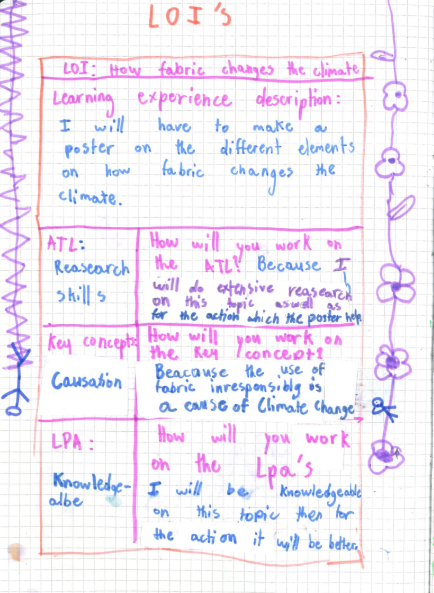 LOI's
LOI: How fabric changes the climate
Learning experience description:
I will have to make a
poster on the different elements
on how fabric changes the
climate.
ATL:
Reasearch
skills
How will you work on
the ATL? Because I
will do extensive reasearch
on this topic aswell as
for the action which the poster help
Key concept:
Causation
How will you work on
the key concept?
Beacause the use of
fabric irresponsibly is
a cause of Climate Change
LPA:
Knowledge-
albe
How will you work
on the Lpa's
I will be knowledgeable
on this topic then for
the action it will be better.